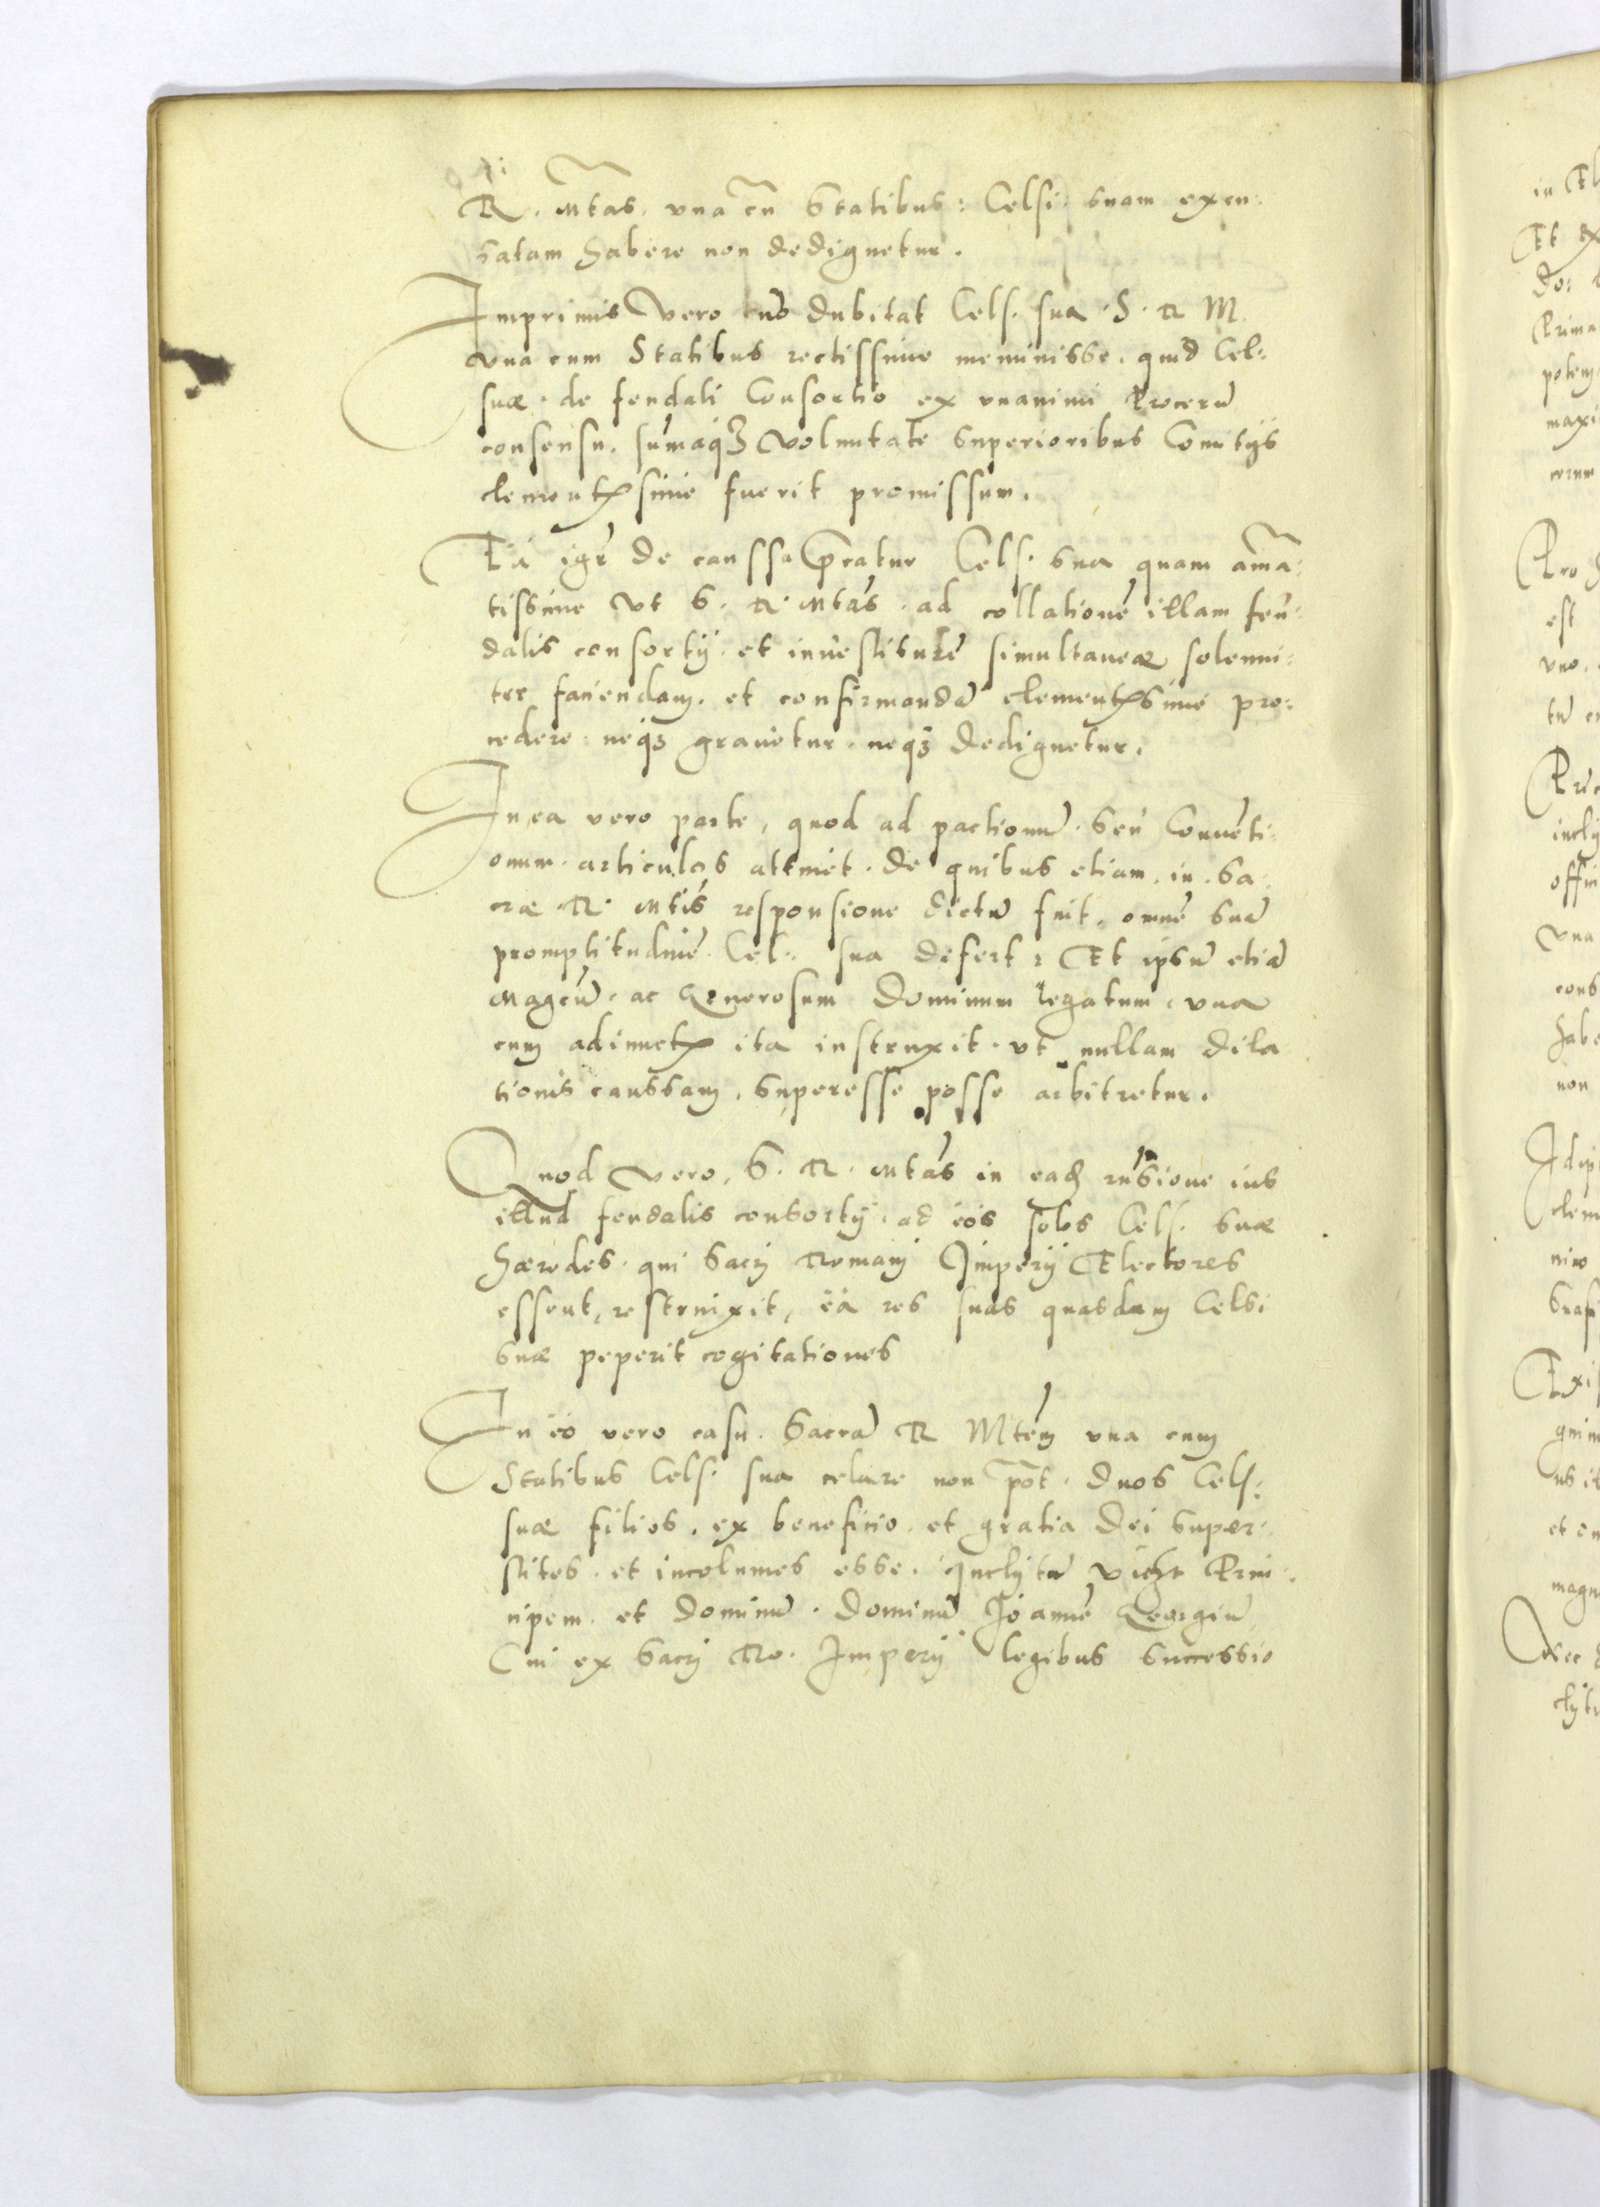 R. Mtas. vna cū Statibus: Celsi. suam excu:
satam habere non dedignetur.
Imprimis Vero nō dubitat Cels. sua S. R M.
vna cum Statibus rectissime meminisse. quid Cel:
suæ de feudali Consortio ex vnanimi Procerū
consensu. sūmaq₃ Voluntate superioribus Comitijs
clementissime fuerit promissum.
Ea igr̄ de caussa p̄catur Cels. sua quam amā:
tissime vt S. R. Mtas. ad collationē illam feu:
dalis consortij et inuestituræ simultaneæ solenni:
ter faciendam. et confirmandā clementissime pro:
cedere neq₃ grauetur. neq₃ dedignetur.
In ea vero parte, quod ad pactionū. seu Conuēti
onum. articulos attinet. de quibus etiam. in. Sa
cræ R. Mtis responsione dictū fuit. omnē suā
promptitudinē Cel. sua defert: Et ipsū etiā
Magcū. ac Generosum Dominum legatum. vna
cum adiunctis ita instruxit. vt nullam dila
tionis caussam. superesse posse arbitretur.
Quod vero, S. R. Mtas in eadē rn̄sione ius
illud feudalis consortij. ad eos solos Cels. suæ
hæredes. qui Sacri Romani Imperij Electores
essent, restrinxit, ea res suas quasdam Celsi
suæ peperit cogitationes
In eo vero casu. Sacrā R Mtem vna cum
Statibus Cels. sua celare non pōt. duos Cels:
suæ filios. ex beneficio. et gratia Dei super:
stites. et incolumes esse. Inclytū vicz Prin:
cipem. et dominū. dominū Joannē Georgiū
Cui ex Sacri Ro. Imperij legibus successio
in El
Et ex
est
vna
cons
habe
non
clem
nino
et
magn
clytu